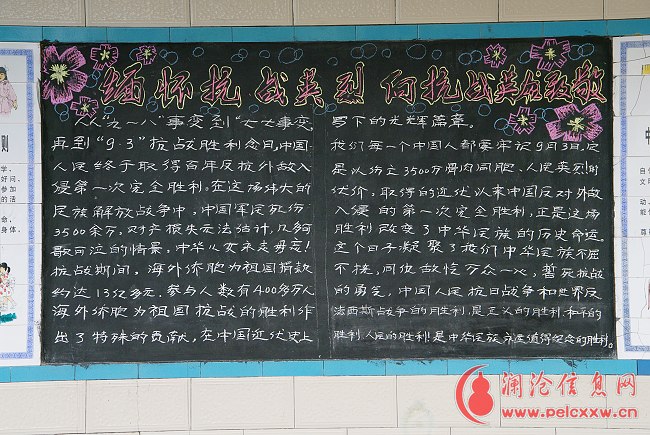 缅怀抗战英烈 向抗战英雄致敬
从"九一八"事变到"七七事变"
再到"9·3"抗战胜利念日,中国
人民终于取得百年反抗外敌入
侵第一次完全胜利。在这场伟大的
民族解放战争中,中国军民死伤
3500余万,财产损失无法估计,
歌可泣的情景,中华儿女永志毋忘!
抗战期间,海外侨胞为祖国捐款
约达13亿多元,参与人数有400多万人
海外侨胞为祖国抗战的胜利作
出了特殊的贡献,在中国近代史上
写下的光辉篇章。
我们每一个中国人都要牢记9月3日,这
是以伤亡3500万骨肉同胞、人民英烈的
代价,取得的近代以来中国反对外敌
入侵的第一次完全胜利,正是这场
胜利改变了中华民族的历史命运。
这个日子凝聚了我们中华民族不屈
不挠,同仇敌忾万众一心,誓死抗战
的勇气,中国人民抗日战争和世界反
法西斯战争的胜利,是正义的胜利、和平的
胜利、人民的胜利!是中华民族永远值得纪念的胜利。
则
澜沧信息网
www.pelcxxw.cn